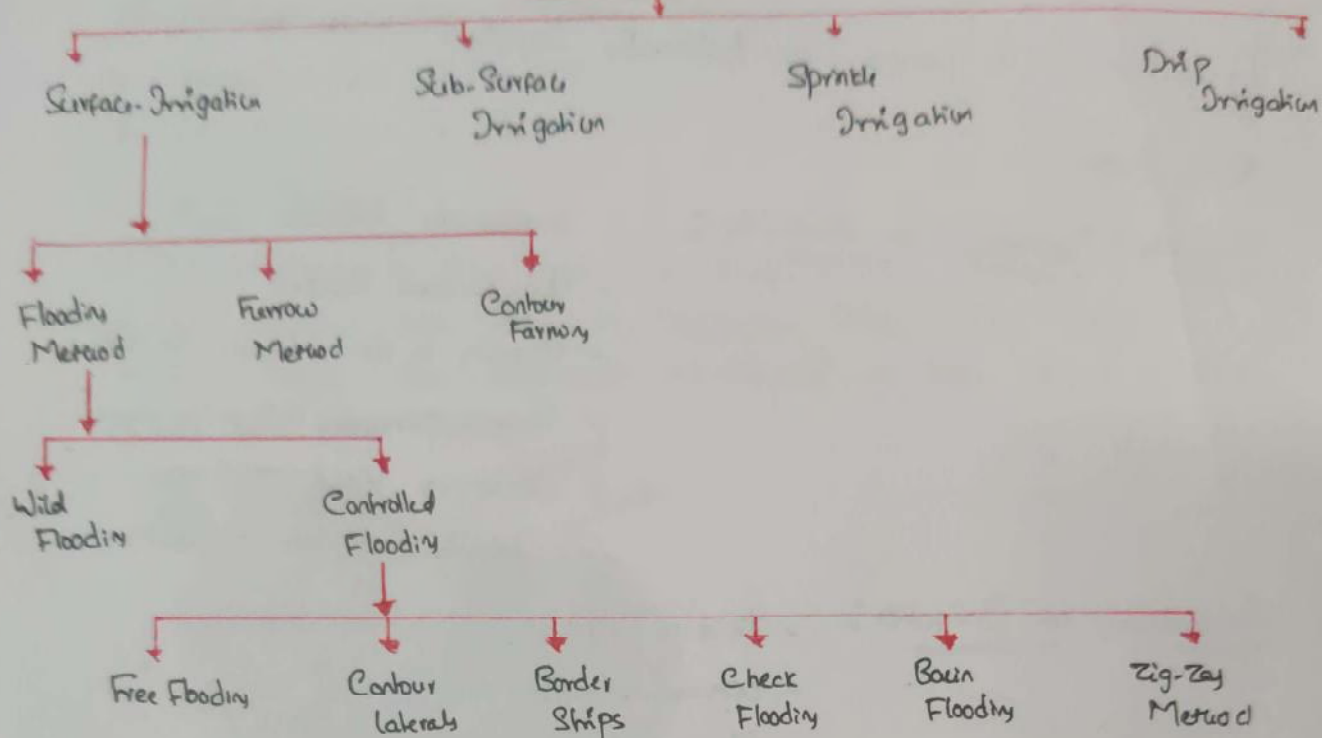 Surface-Irrigation
Sub-Surface
Irrigation
Sprinkle
Irrigation
Drip
Irrigation
Flooding
Method
Furrow
Method
Contour
Farming
Wild
Flooding
Controlled
Flooding
Free Flooding
Contour
Laterals
Border
Strips
Check
Flooding
Basin
Flooding
Zig-Zag
Method